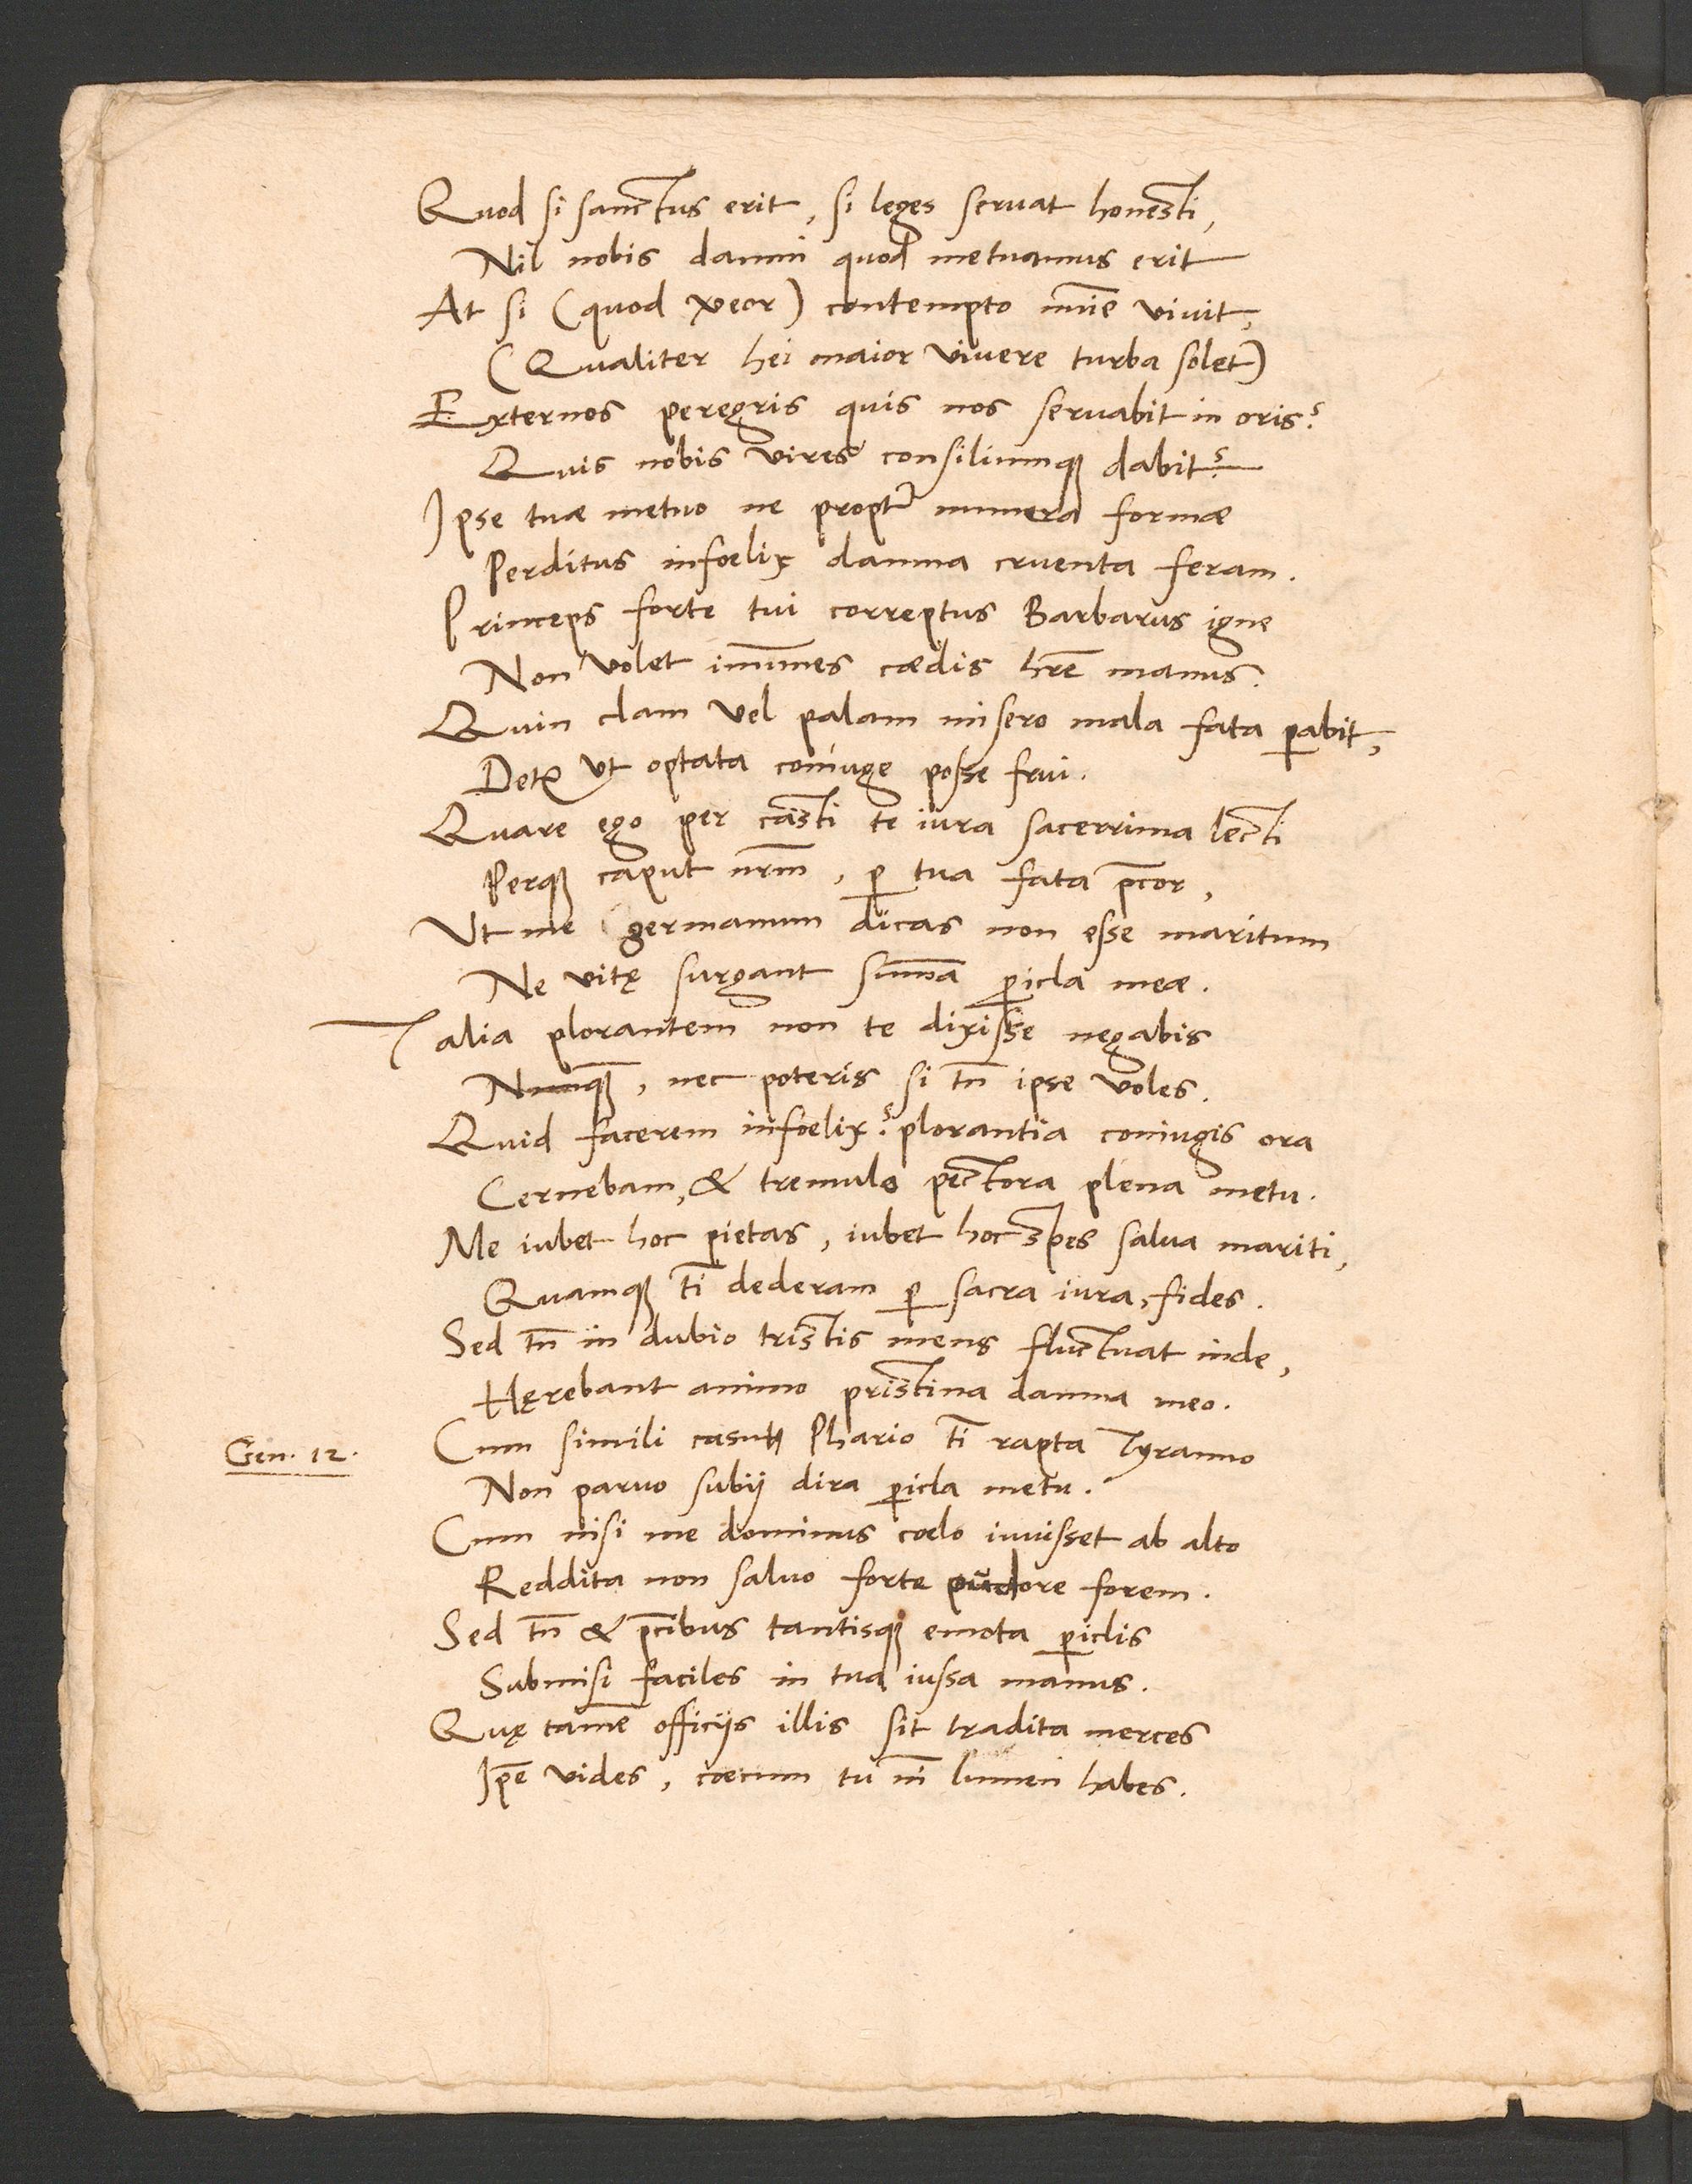 Quod si sanctus erit, si leges servat honesti,
Nil nobis damni quod metuamus erit
At si (quod v̄eor) contempto nūīe vivit,
(Qualiter hei maior vivere turba solet)
Externos peregris quis nos servabit in oris?
Quis nobis vires consiliumqꝫ dabit?
Ipse tuæ metuo ne propt̄ munera formæ
Perditus infoelix damna cruenta feram.
Princeps forte tui correptus Barbarus igne
Non volet im̄unes cædis hr̄e manus.
Quin clam vel palam misero mala fata ꝑabit,
Det᷑ ut optata coniuge posse frui.
Quare ego per casti te iura sacerrima lecti
Perqꝫ caput nr̄m, ꝑ tua fata p̄cor,
Ut me germanum dicas non esse maritum
Ne vitę surgant sum̄a ꝑicla meæ.
Talia plorantem non te dixisse negabis
Nunqꝫ, nec poteris si tn̄ ipse voles.
Quid facerem infoelix? plorantia coniugis ora
Cernebam, & tremulo pectora plena metu.
Me iubet hoc pietas, iubet hoc spes salva mariti,
Quamqꝫ tī dederam ꝑ sacra iura, fides.
Sed tn̄ in dubio tristis mens fluctuat inde,
Hęrebant animo pristina damna meo.
Gen. 12. Cum simili casu Phario tī rapta Tyranno
Non parvo subij dira ꝑicla metu.
Cum nisi me dominus coelo iuvisset ab alto
Reddita non salvo forte pudore forem.
Sed tn̄ & p̄cibus tantisqꝫ emota ꝑiclis
Submisi faciles in tua iussa manus.
Quę tamē officijs illis sit tradita merces
Ip̄e vides, coecum tu nī lumen habes.